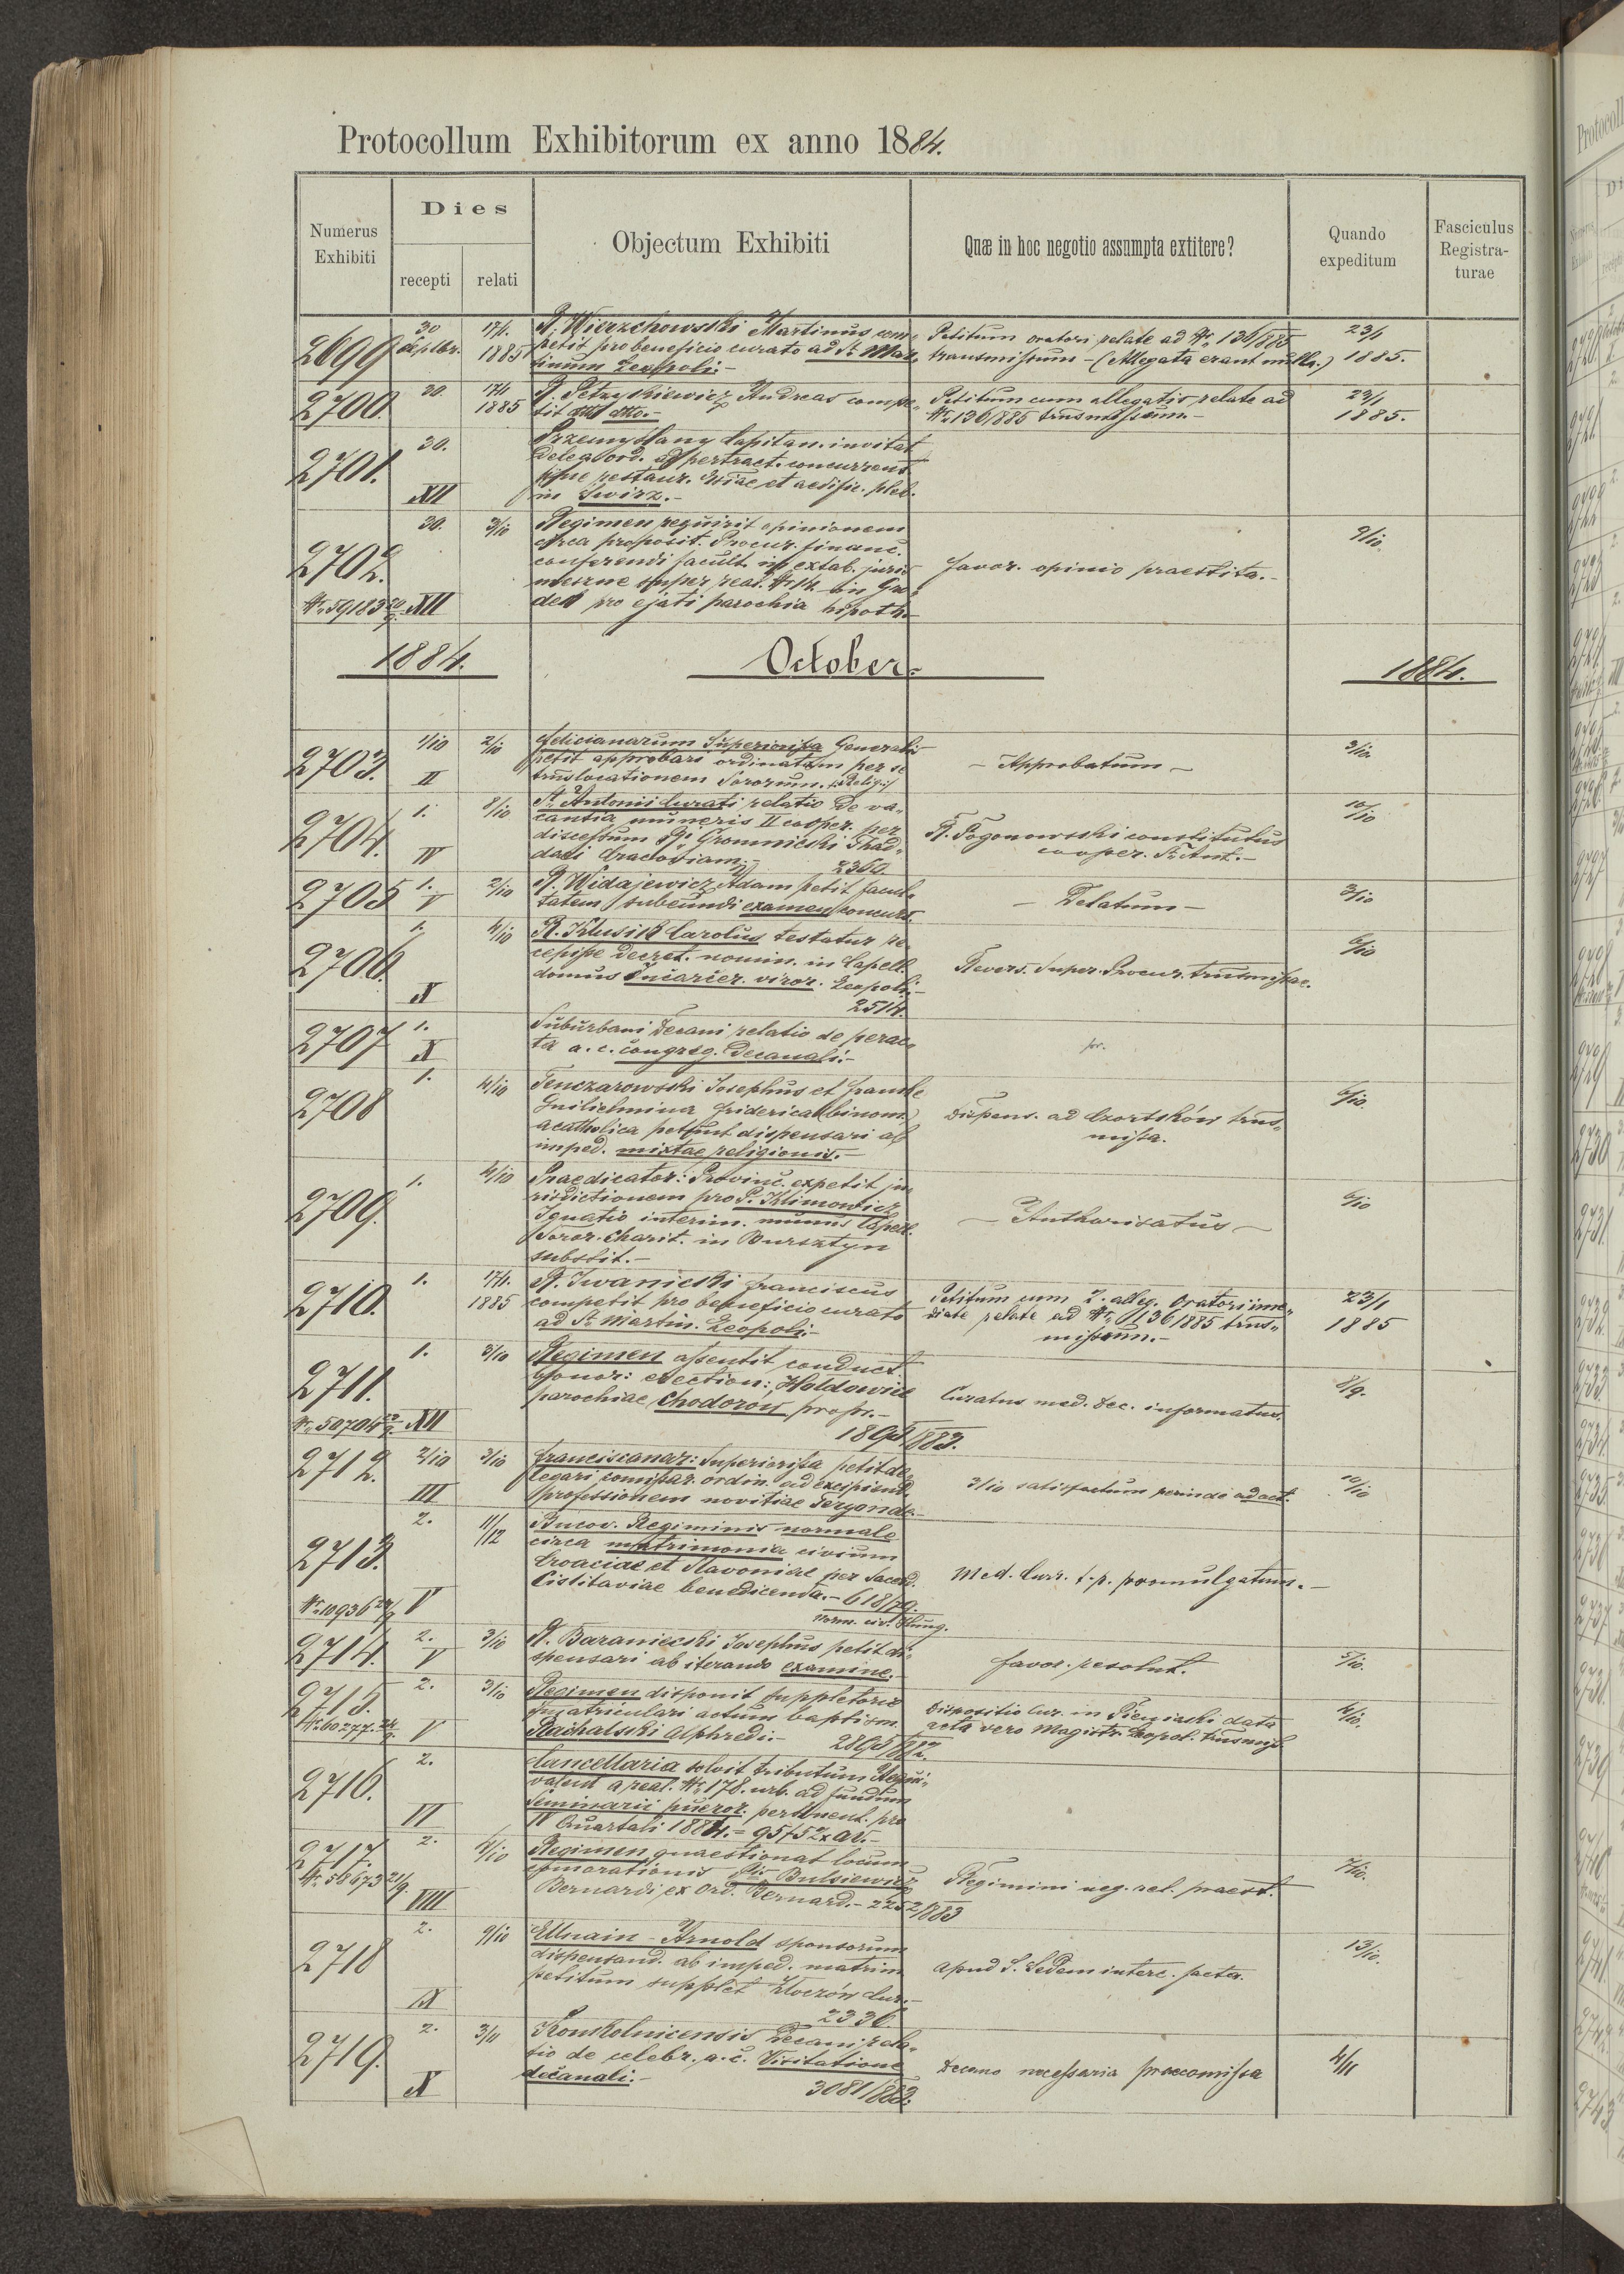 Protocollum Exhibitorum ex anno 1884.
Numerus Exhibiti
Dies
recepti
relati
Objectum Exhibiti
Quæ in hoc negotio assumpta extitere?
Quando expeditum
Fasciculus Registra-
turae
2699 30 Septbr. 17/1. 1885
R. Wierzchowski Martinus com-
petit pro beneficio curato ad St. Mar-
tinum Leopoli.-
Petitum oratori relate ad Nr. 136/885
transmissum - (Allegata erant nulla.)
23/1 1885.
2700. 30. 17/1 1885
R. Petryskiewicz Andreas compe-
tit dto dto.-
Petitum cum allegatis relate ad
Nr. 136/885 trnsmissum.-
23/1 1885.
2701. 30. XII
Przemyślany Capitan. invitat
Deleg. ord. ad pertract. concurrent.
restaur. et aedific. pleb.
in Swirz.-
2702. 30. 3/10
Nr. 59183 XII
Regimen requirit opinionem
circa proposit. Procur. financ.
conferendi facult. extab. juris
super real. Nr. 14 in Gró-
dek pro ejati parochia hipoth.
favor. opinio praestita.-
9/10.
1884. October. 1884.
2703. 1/10 2/10 II
Felicianarum Superiorissa Generalis
petit approbari ordinatam per se
trnslocationem Sororum. Relig.
- Approbatum -
3/10.
2704. 1. 8/10 IV
St. Antonii Curati relatio de va-
cantia muneris II cooper. per
discessum R. Gromnicki Thad-
daei Cracoviam.-
2360.
R. Pogonowski constitutus
cooper. St. Ant.-
10/10
2705 1. V 2/10
R. Widajewicz Adam petit facul-
tatem subeundi examen concurs.
- Delatum -
3/10
2706. 1. 4/10 X
R. Klusik Carolus testatur re-
cepisse Decret. nomin. in Capell.
domus incarcer. viror. Leopoli.-
2514.
Revers. Super. Procur. trnsmissae.
6/10
2707 1. X
Suburbani Decani relatio de perac-
ta a. c. congreg. Decanali.-
2708 1. 4/10
Tenczarowski Josephus et Franske
Guilielmina Friderica (binom.)
acatholica petunt dispensari ab
imped. mixtae religionis.-
Dispens. ad Czortków trns-
missa.
6/10.
2709. 1. 4/10
Praedicator: Provinc. expetit ju-
risdictionem pro P. Klimowicz
Ignatio interim. munus Capell.
Soror. Charit. in Bursztyn
substit.-
- Authorisatus -
6/10
2710. 1. 17/1. 1885
R. Iwanicki Franciscus
competit pro beneficio curato
ad St. Martin. Leopoli.-
Petitum cum 7. alleg. oratori ime-
diate relate ad Nr. 136/1885 trns-
missum.-
23/1 1885
2711. 1. 3/10
Nr. 50704 XII
Regimen assentit conduct
honor: erection: Hołdowice
parochiae Chodorów propr.-
Curatus med. Dec. informatus.
8/9.
2712. 2/10 3/10 III
Franciscanar: Superiorissa petit de-
legari comissar. ordin. ad excipiend.
professionem novitiae Tergonde.-
3/10 satisfactum perinde ad act.
10/10
2713. 2. 11/12
Nr. 10936 V
Bucov. Regiminis normale
circa matrimonia civium
Croaciae et Slavoniae per Sacerd.
Cislitaviae benedicenda.- 618/79.
Norm. civ. Hung.
Med. Curr. f.p. promulgatum.-
2714. 2. V 3/10
R. Baraniecki Josephus petit di-
spensari ab iterando examine.-
favor. resolut.
5/10.
2715. 2. 3/10
Nr. 60277. V
Regimen disponit suppletorie
immatriculari actum baptism.
Rachalski Alphredi.-
Dispositio Cur. in Pieniaki data
acta vero Magistr. Leopol. trnsmiss.
4/10.
2716. 2. VI
Cancellaria solvit tributum Aequi-
valent a real. Nr. 178. urb. ad fundum
Seminarii pueror. pertinent. pro
IV Quartali 1884.
2717. 2. 4/10
Nr. 58673 21/9. VIII
Regimen quaestionat locum
comorationis Bulsiewicz
Bernardi, ex Ord. Bernard.- 2252/883
Regimini neg. rel. praest.
7/10.
2718 2. 9/10 IX
Ellnain - Arnold sponsorum
dispensand. ab imped. matrim.
petitum supplet Złoczów Cur.-
2336.
apud S. Sedem interc. facta.
13/10.
2719. 2. 3/11 X
Konkolnicensis Decani rela-
tio de celebr. a. c. Visitatione
decanali.-
3081/883.
Decano necessaria praecomissa
4/11